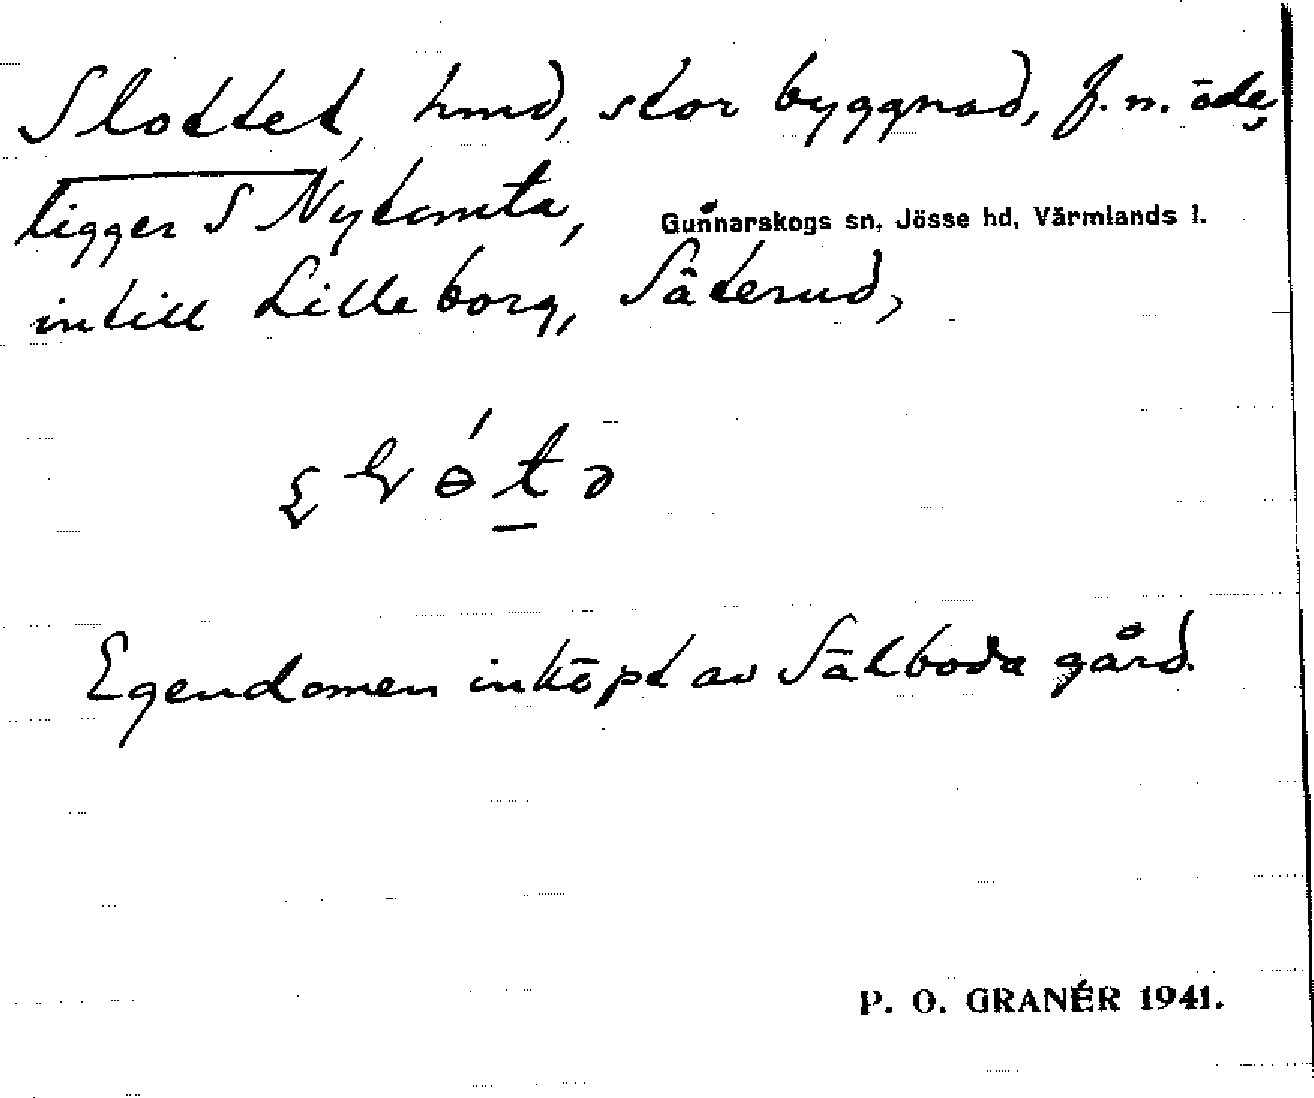 Slottet, hmd, stor byggnad, f.n. öde,
ligger S Nytomta,
Gunnarskogs sn, Jösse hd, Värmlands l.
intill Lilleborg, Säterud,
Egendomen inköpt av Sälboda gård.
P. O. GRANÉR 1941.